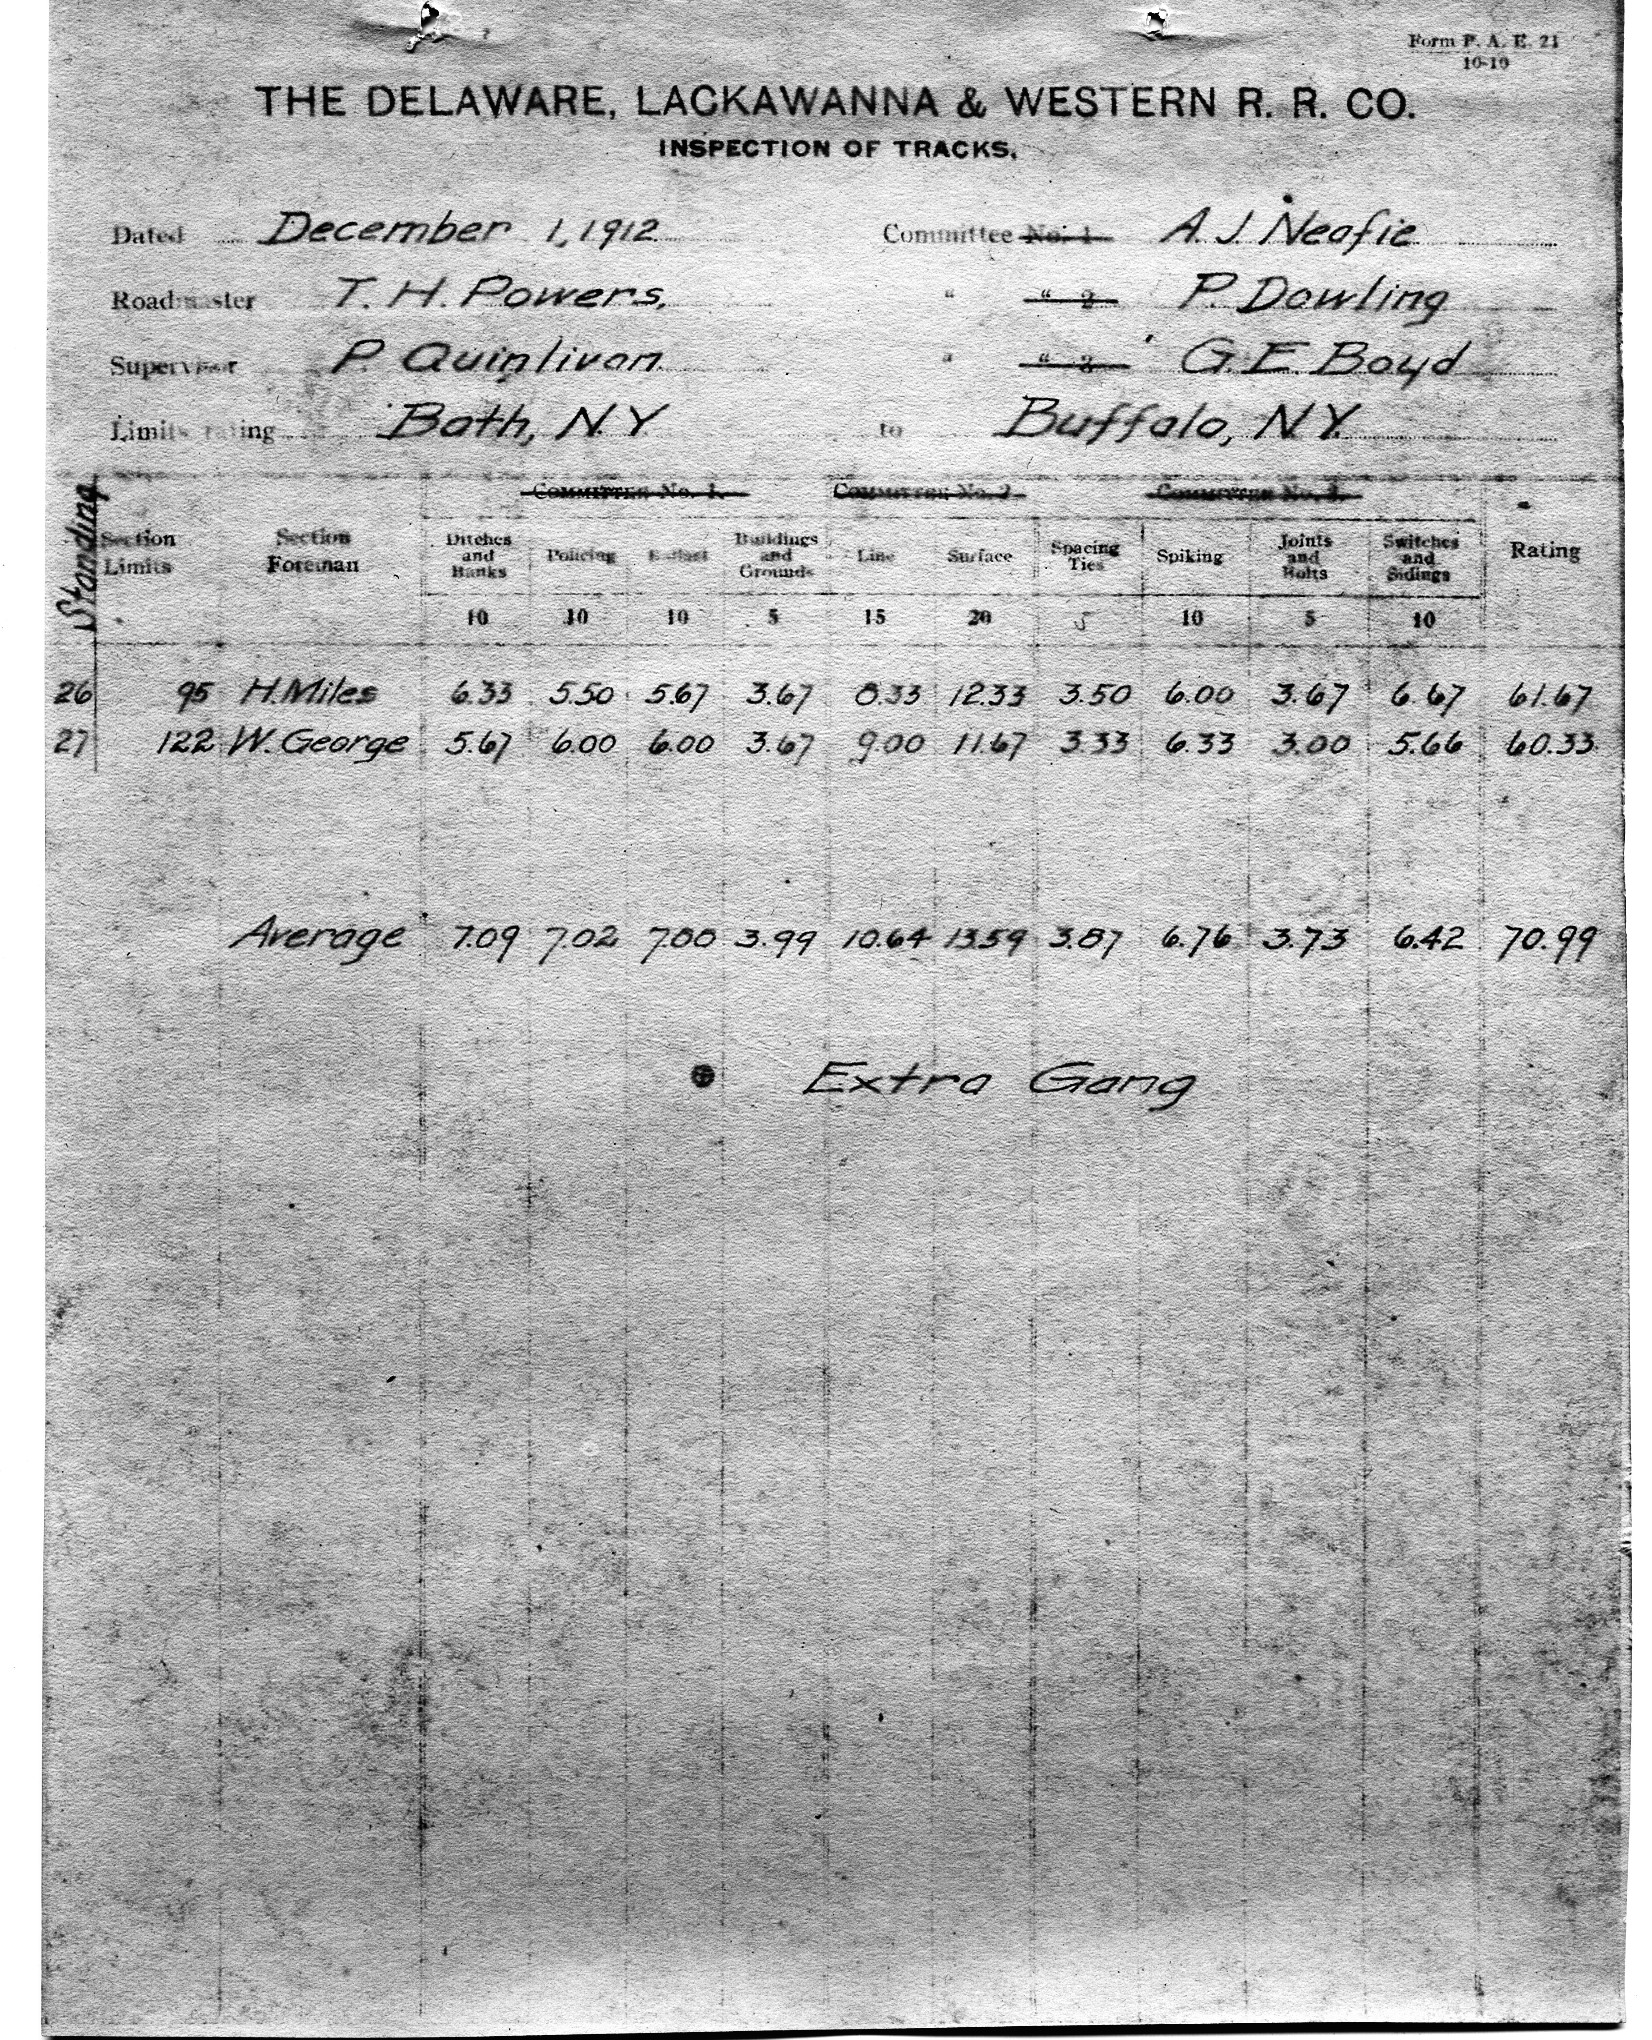 Form P. A. E. 21
10-10
THE DELAWARE, LACKAWANNA & WESTERN R. R. CO.
INSPECTION OF TRACKS.
Dated December 1, 1912 Committee No. 1 A. J. Neafie
Roadmaster T. H. Powers, " " 2 P. Dowling
Supervisor P. Quinlivan " " 3 G. E. Boyd
Limits rating Bath, N.Y to Buffalo, N.Y.
Standing
Committee No. 1. Committee No. 2 Committee No. 3.
Section Limits Section Foreman Ditches and Banks Policing Ballast Buildings and Grounds Line Surface Spacing Ties Spiking Joints and Bolts Switches and Sidings Rating
10 10 10 5 15 20 5 10 5 10
26 95 H. Miles 6.33 5.50 5.67 3.67 8.33 12.33 3.50 6.00 3.67 6.67 61.67
27 122 W. George 5.67 6.00 6.00 3.67 9.00 11.67 3.33 6.33 3.00 5.66 60.33
Average 7.09 7.02 7.88 3.99 10.64 13.59 3.87 6.76 3.73 6.42 70.99
Extra Gang